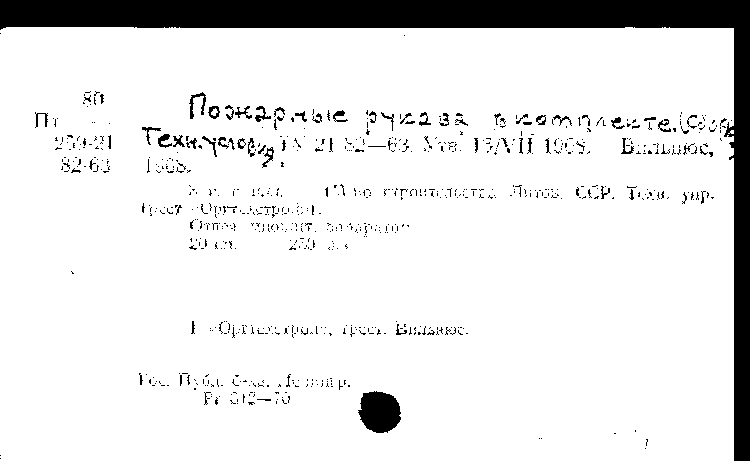 80
Пт
259-21
82-63
Пожарные рукава в комплекте. (Сбор
Техн. условия ТУ 21 82—63. Утв. 15/VII 1968. Вильнюс,
1968.
строительства Литов. ССР. Техн. упр.
трест «Оргтехстрой».
Отпеч. множит. аппаратом
20 см. 250
1 «Оргтехстрой», трест. Вильнюс.
Гос. Публ. б-ка. Ленингр.
Рг 612—70